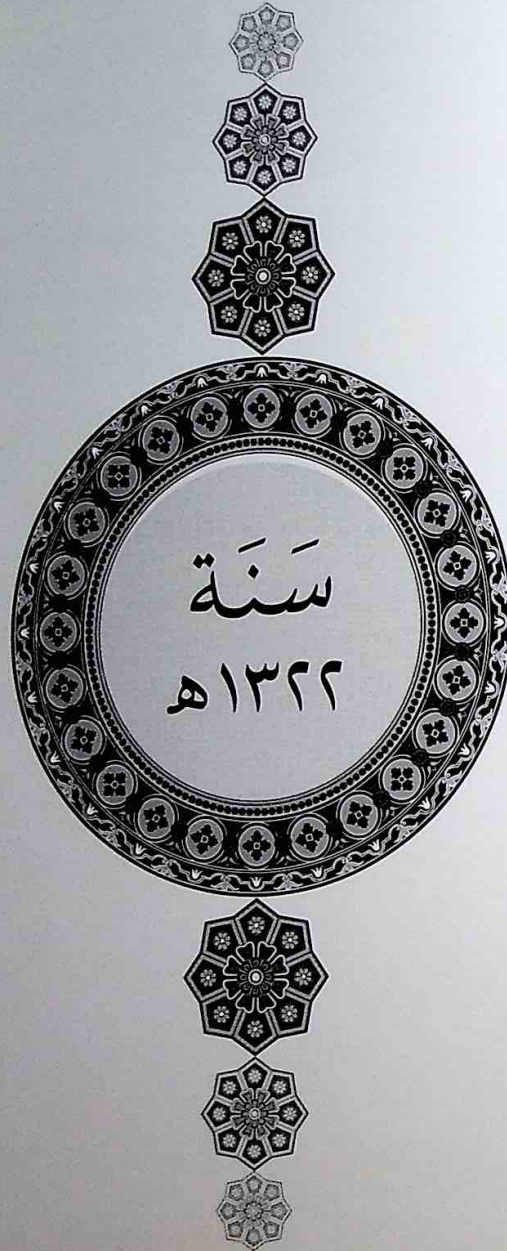 سَنَة
١٣٢٢هـ